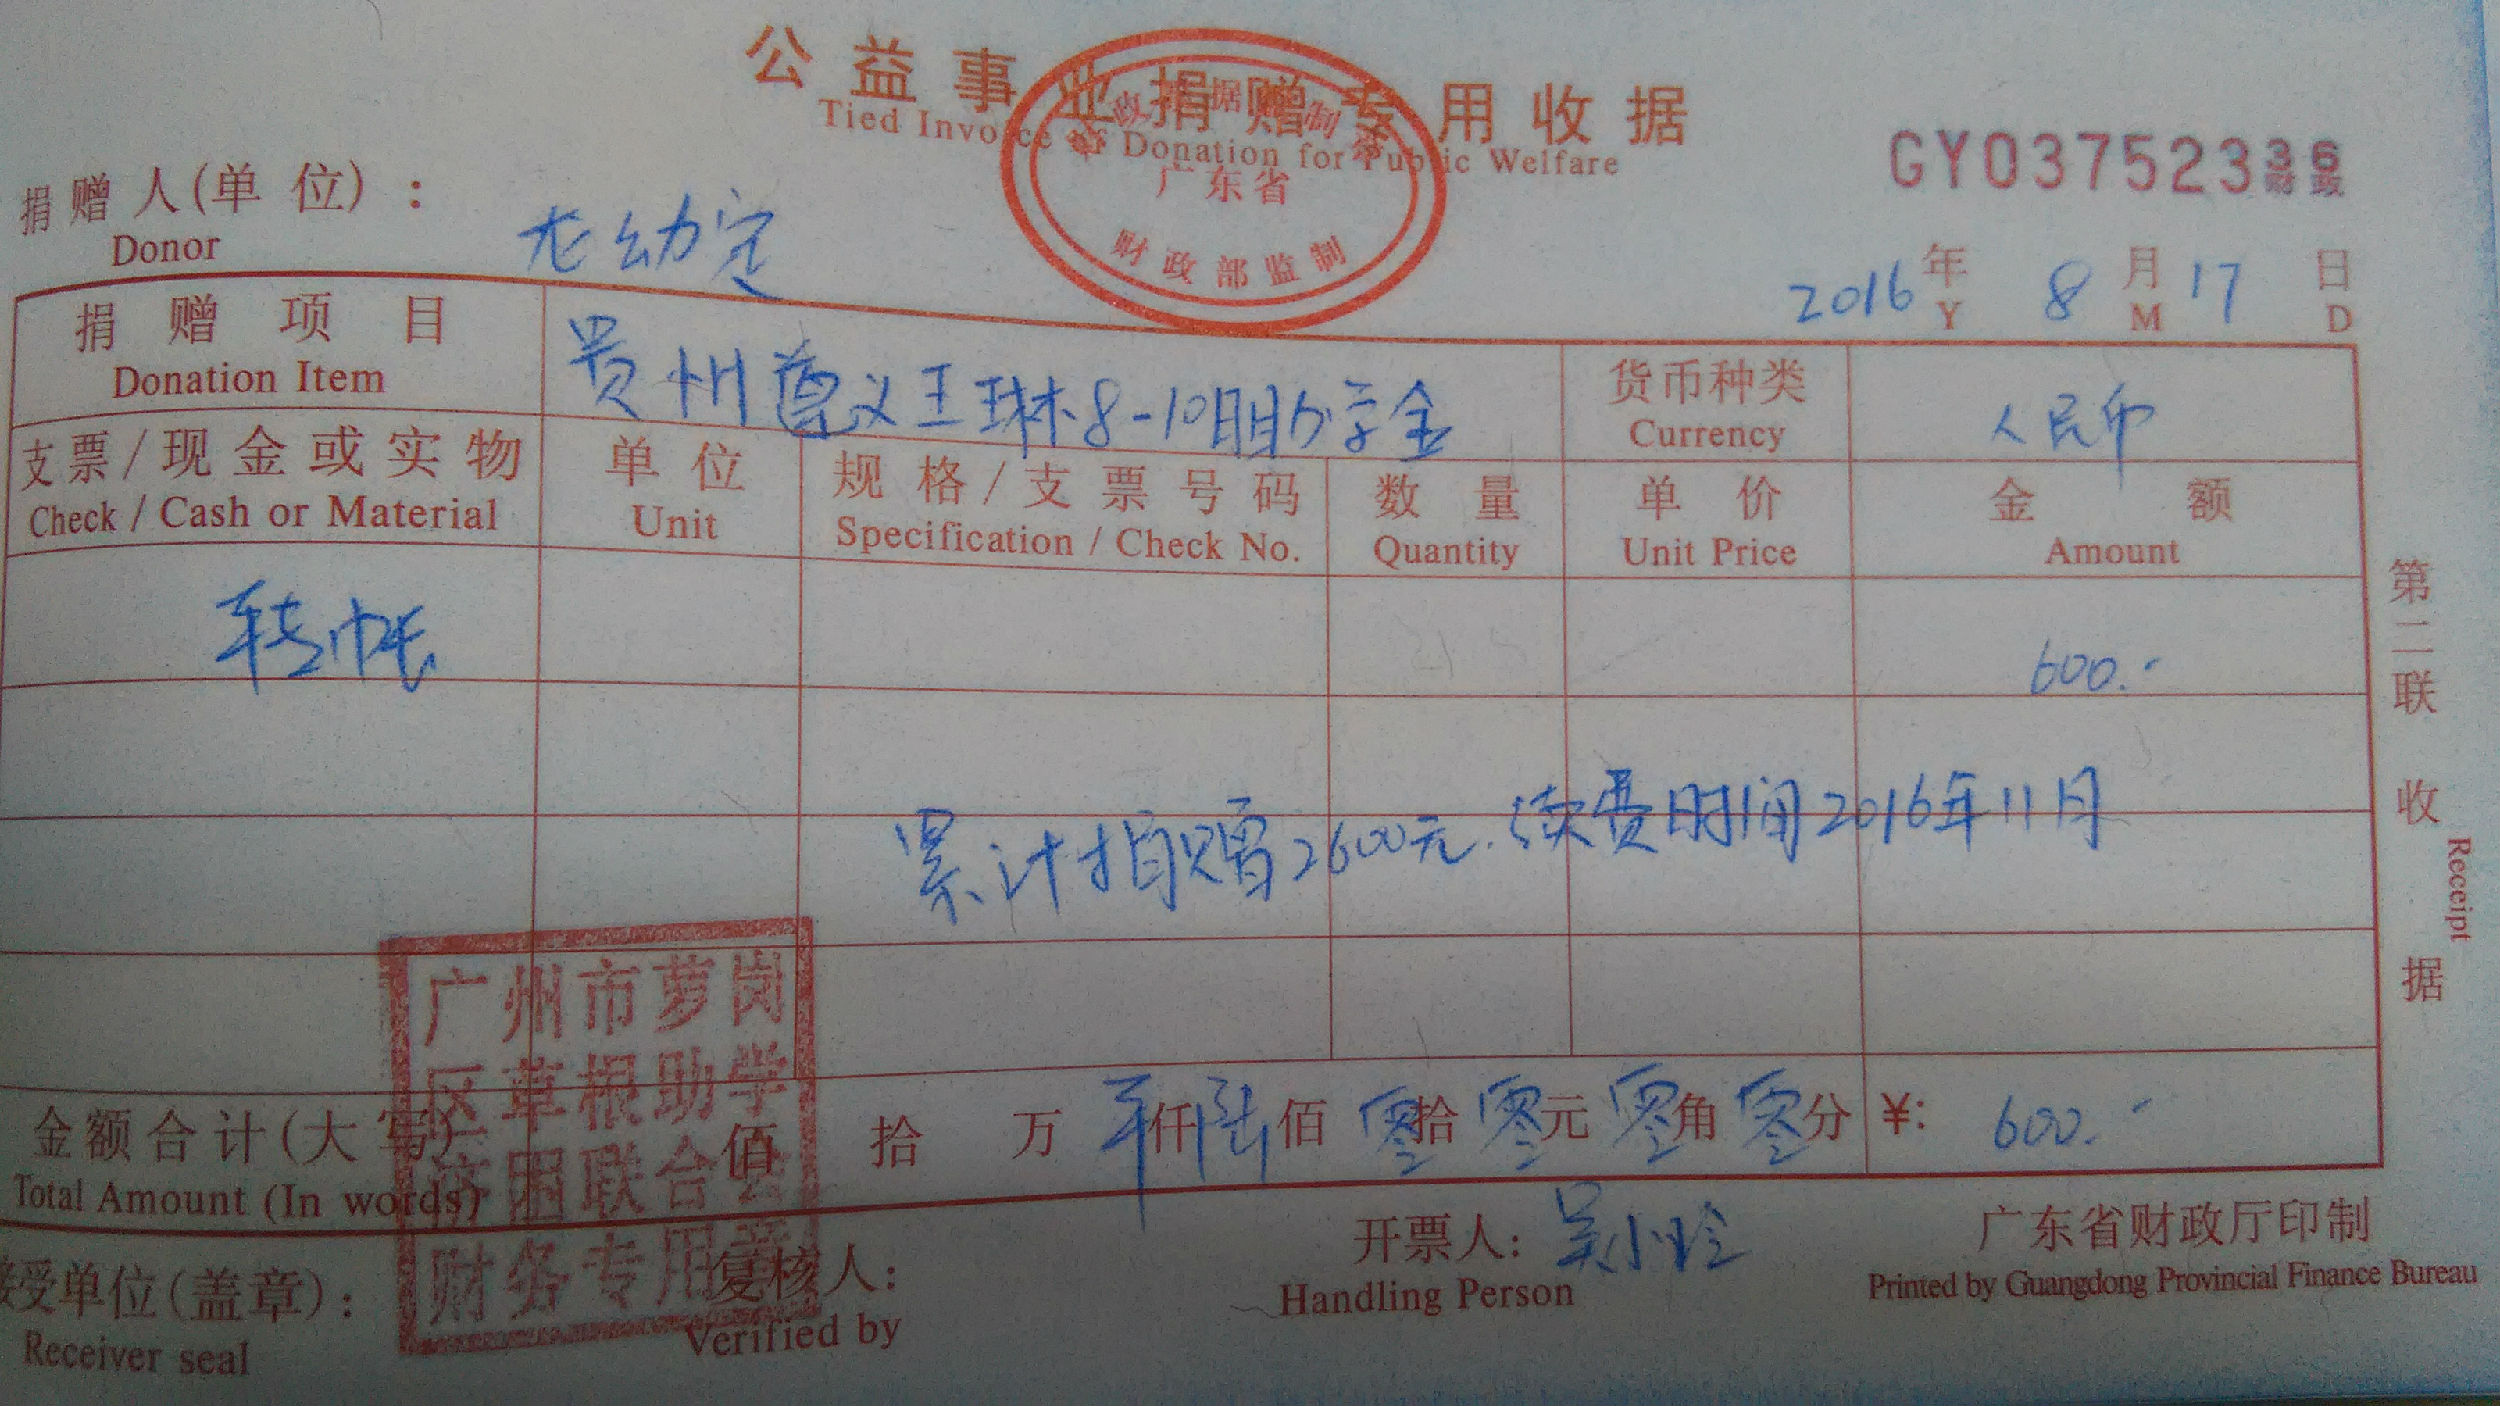 公益事业捐赠专用收据
Tied Invoice of Donation for Public Welfare
财政票据监制章
广东省
财政部监制
GY03752336
财政
捐赠人(单位)：
Donor
幼定
2016年8月17日
Y M D
捐赠项目 贵州遵义王琳8-10月助学金 货币种类 人民币
Donation Item Currency
支票/现金或实物 单位 规格/支票号码 数量 单价 金额
Check / Cash or Material Unit Specification / Check No. Quantity Unit Price Amount
转帐 600.-
累计捐赠2600元.续费时间2016年11月
第二联 收据
Receipt
广州市萝岗
区草根助学
济困联合会
财务专用章
金额合计(大写) 佰 拾 万 仟陆佰零拾零元零角零分 ¥: 600.-
Total Amount (In words)
接受单位(盖章)： 复核人: 开票人: 吴小玲 广东省财政厅印制
Receiver seal Verified by Handling Person Printed by Guangdong Provincial Finance Bureau